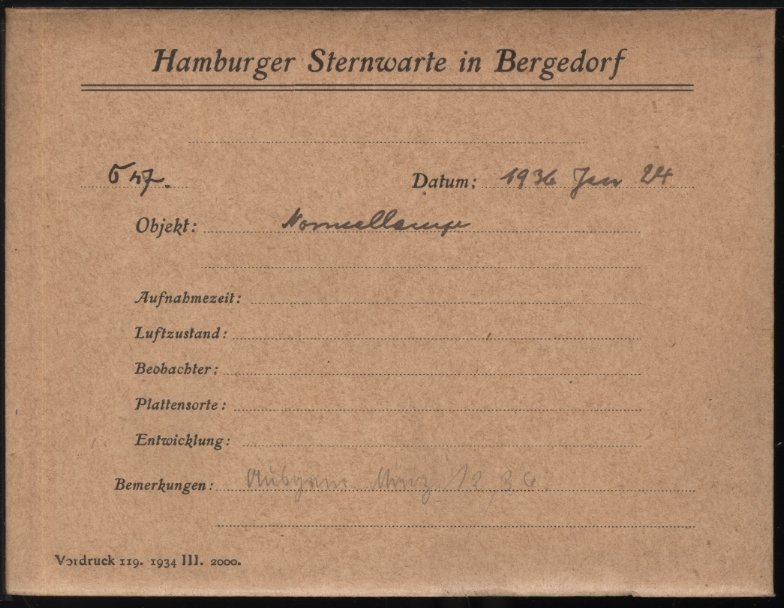 Hamburger Sternwarte in Bergedorf
547. Datum: 1936 Jan 24
Objekt: Normallampe
Aufnahmezeit:
Luftzustand:
Beobachter:
Plattensorte:
Entwicklung:
Bemerkungen:
Vordruck 119. 1934 III. 2000.